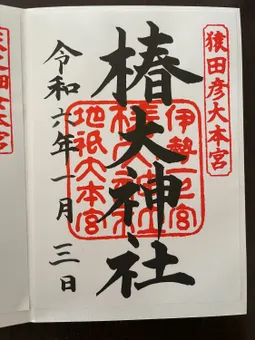 猿田彦大本宮
椿大神社
伊勢一宮
地祇大本宮
令和六年一月三日